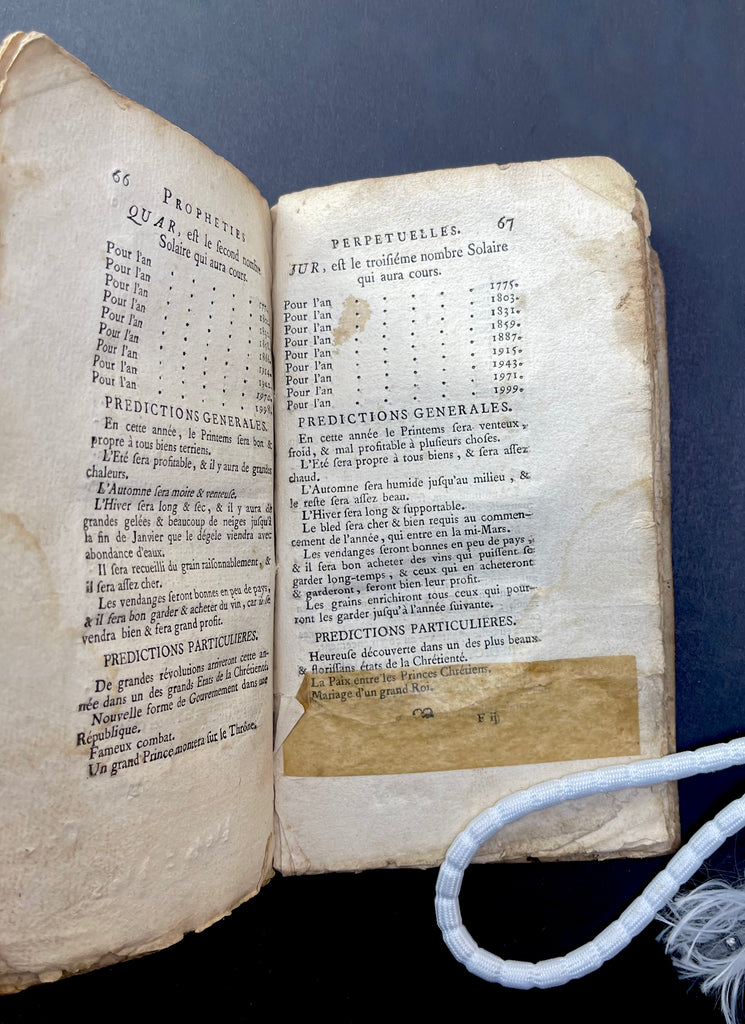 66
PROPHETIES
QUAR, eſt le ſecond nombre
Solaire qui aura cours.
Pour l'an
Pour l'an
Pour l'an
Pour l'an
Pour l'an
Pour l'an
Pour l'an
Pour l'an . . . . 1970.
Pour l'an . . . . 1998.
PREDICTIONS GENERALES.
En cette année, le Printems ſera bon &
propre à tous biens terriens.
L'Eté ſera profitable, & il y aura de grandes
chaleurs.
L'Automne ſera moite & venteuſe.
L'Hiver ſera long & ſec, & il y aura de
grandes gelées & beaucoup de neiges juſqu'à
la fin de Janvier que le dégele viendra avec
abondance d'eaux.
Il ſera recueilli du grain raiſonnablement, &
il ſera aſſez cher.
Les vendanges ſeront bonnes en peu de pays,
& il ſera bon garder & acheter du vin, car il ſe
vendra bien & fera grand profit.
PREDICTIONS PARTICULIERES.
De grandes révolutions arriveront cette an-
née dans un des grands Etats de la Chrétienté.
Nouvelle forme de Gouvernement dans une
République.
Fameux combat.
Un grand Prince montera ſur le Thrône.
PERPETUELLES. 67
JUR, eſt le troiſiéme nombre Solaire
qui aura cours.
Pour l'an . . . . 1775.
Pour l'an . . . . 1803.
Pour l'an . . . . 1831.
Pour l'an . . . . 1859.
Pour l'an . . . . 1887.
Pour l'an . . . . 1915.
Pour l'an . . . . 1943.
Pour l'an . . . . 1971.
Pour l'an . . . . 1999.
PREDICTIONS GENERALES.
En cette année le Printems ſera venteux,
froid, & mal profitable à pluſieurs choſes.
L'Eté ſera propre à tous biens, & ſera aſſez
chaud.
L'Automne ſera humide juſqu'au milieu, &
le reſte ſera aſſez beau.
L'Hiver ſera long & ſupportable.
Le bled ſera cher & bien requis au commen-
cement de l'année, qui entre en la mi-Mars.
Les vendanges ſeront bonnes en peu de pays,
& il ſera bon acheter des vins qui puiſſent ſe
garder long-temps, & ceux qui en acheteront
& garderont, feront bien leur profit.
Les grains enrichiront tous ceux qui pour-
ront les garder juſqu'à l'année ſuivante.
PREDICTIONS PARTICULIERES.
Heureuſe découverte dans un des plus beaux
& floriſſans états de la Chrétienté.
La Paix entre les Princes Chrétiens.
Mariage d'un grand Roi.
F ij